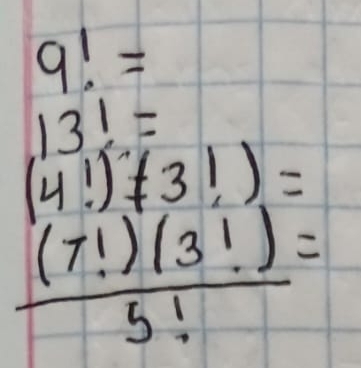 9! =
13! =
(4!)(3!) =
(7!)(3!) =
5!